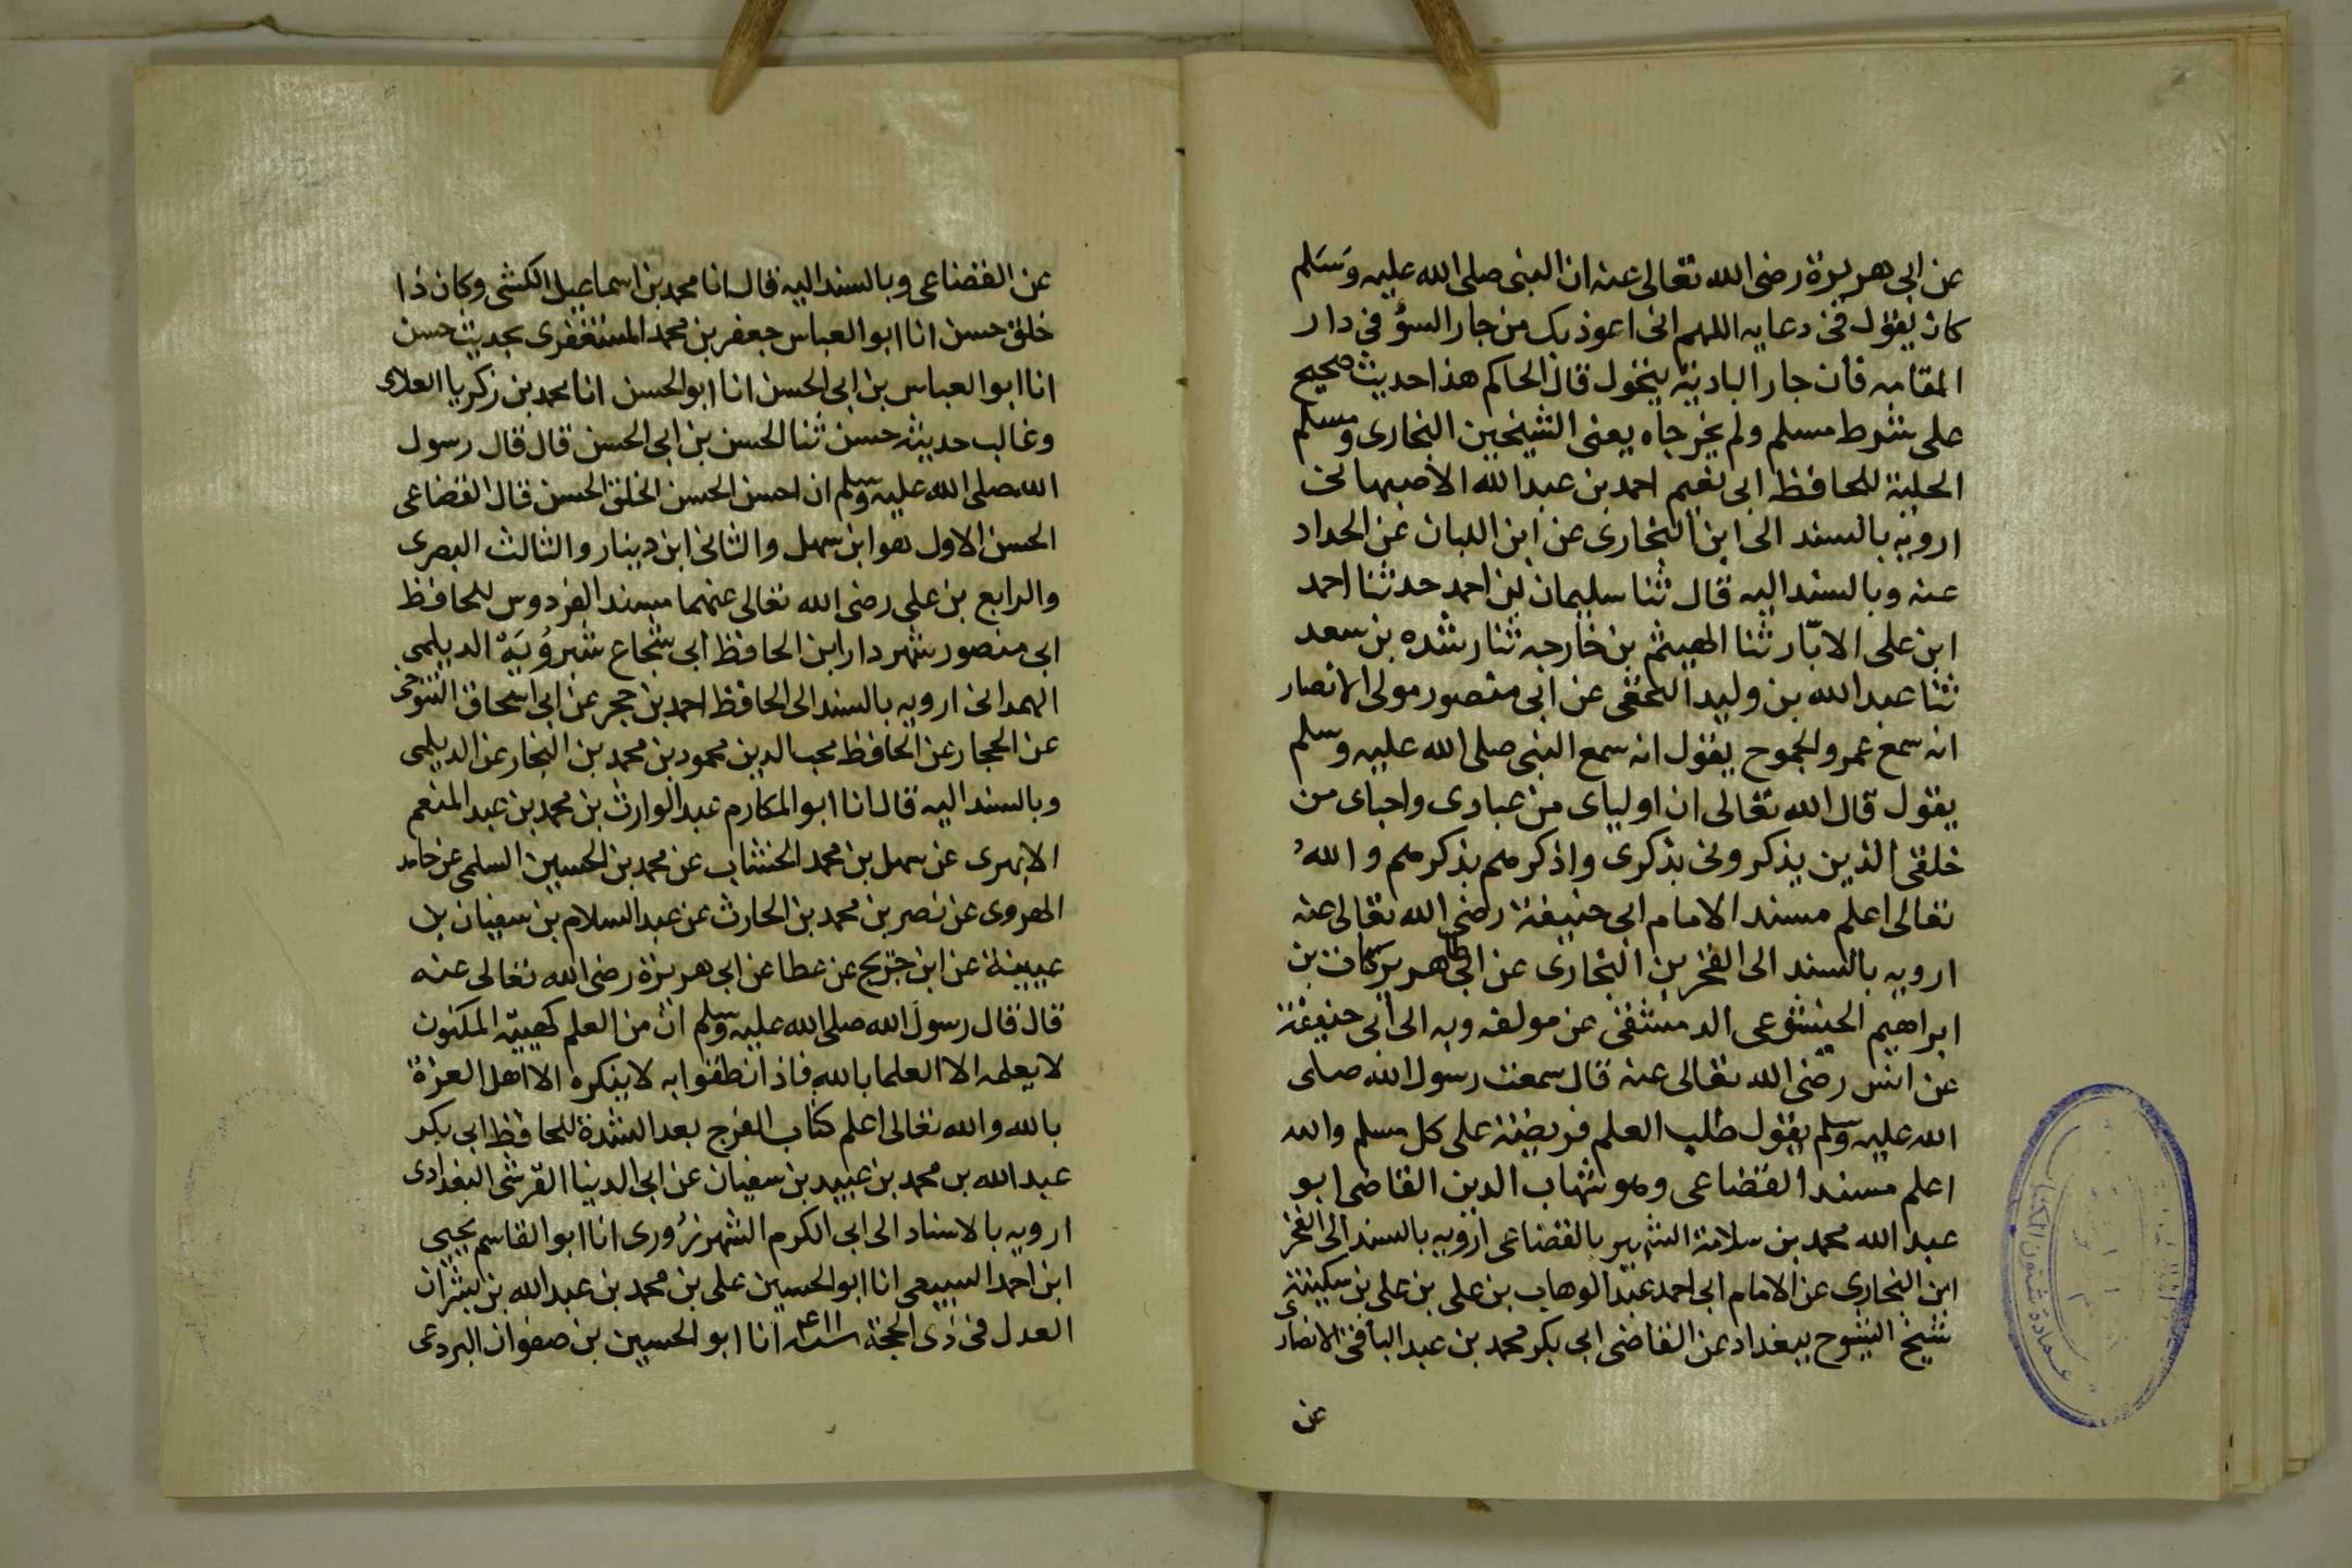 عن ابى هريرة رضى الله تعالى عنه ان النبى صلى الله عليه وسلم
كان يقول فى دعايه اللهم انى اعوذ بك من جار السؤ فى دار
المقامه فان جار البادية يتحول قال الحاكم هذا حديث صحيح
على شرط مسلم ولم يخرجاه يعنى الشيخين البخارى ومسلم
الحلية للحافظ ابى نعيم احمد بن عبد الله الاصبهانى
ارويه بالسند الى ابن البخارى عن ابن اللبان عن الحداد
عنه وبالسند اليه قال ثنا سليمان بن احمد حدثنا احمد
ابن على الابّار ثنا الهيثم بن خارجه ثنا رشده بن سعد
ثنا عبد الله بن وليد عن ابى منصور مولى الانصار
انه سمع عمرو الجموح يقول انه سمع النبى صلى الله عليه وسلم
يقول قال الله تعالى ان اولياى من عبادى واحباى من
خلقى الذين يذكرونى بذكرى واذكرهم بذكرهم والله
تعالى اعلم مسند الامام ابى حنيفة رضى الله تعالى عنه
ارويه بالسند الى الفخر بن البخارى عن ابى طاهر بركات بن
ابراهيم الخشوعى الدمشقى عن مولفه وبه الى ابى حنيفة
عن انس رضى الله تعالى عنه قال سمعت رسول الله صلى
الله عليه وسلم يقول طلب العلم فريضة على كل مسلم والله
اعلم مسند القضاعى وهو شهاب الدين القاضى ابو
عبد الله محمد بن سلامة الشهير بالقضاعى ارويه بالسند الى الفخر
ابن البخارى عن الامام ابى احمد عبد الوهاب بن على بن على بن سكينة
شيخ الشيوح ببغداد عن القاضى ابى بكر محمد بن عبد الباقى الانصارى
عن
عمادة شئون المكتبات
عن القضاعى وبالسند اليه قال انا محمد بن اسماعيل الكشى وكان ذا
خلق حسن انا ابو العباس جعفر بن محمد المستغفرى بحديث حسن
انا ابو العباس بن ابى الحسن انا ابو الحسن انا محمد بن زكريا العلاى
وغالب حديثه حسن ثنا الحسن بن ابى الحسن قال قال رسول
الله صلى الله عليه وسلم ان احسن الحسن الخلق الحسن قال القضاعى
الحسن الاول هو ابن سهل والثانى ابن دينار والثالث البصرى
والرابع بن على رضى الله تعالى عنهما مسند الفردوس للحافظ
ابى منصور شهردار ابن الحافظ ابى شجاع شيرويه الديلمى
الهمدانى ارويه بالسند الى الحافظ احمد بن حجر عن ابى اسحاق التنوخى
عن الحجار عن الحافظ محب الدين محمود بن محمد بن النجار عن الديلمى
وبالسند اليه قال انا ابو المكارم عبد الوارث بن محمد بن عبد المنعم
الابهرى عن سهل بن محمد الخشاب عن محمد بن الحسين السلمى عن حامد
الهروى عن نصر بن محمد بن الحارث عن عبد السلام بن سفيان بن
عيينة عن ابن جريج عن عطا عن ابى هريرة رضى الله تعالى عنه
قال قال رسول الله صلى الله عليه وسلم ان من العلم كهيية المكنون
لا يعلمه الا العلما بالله فاذا نطقوا به لا ينكره الا اهل العزة
بالله والله تعالى اعلم كتاب الفرج بعد الشدة للحافظ ابى بكر
عبد الله بن محمد بن عبيد بن سفيان عن ابى الدنيا القرشى البغدادى
ارويه بالاسناد الى ابى الكرم الشهرزورى انا ابو القاسم يحيى
ابن احمد السيبعى انا ابو الحسين على بن محمد بن عبد الله بن بشران
العدل فى ذى الحجة سنة ٤١١ انا ابو الحسين بن صفوان البردعى